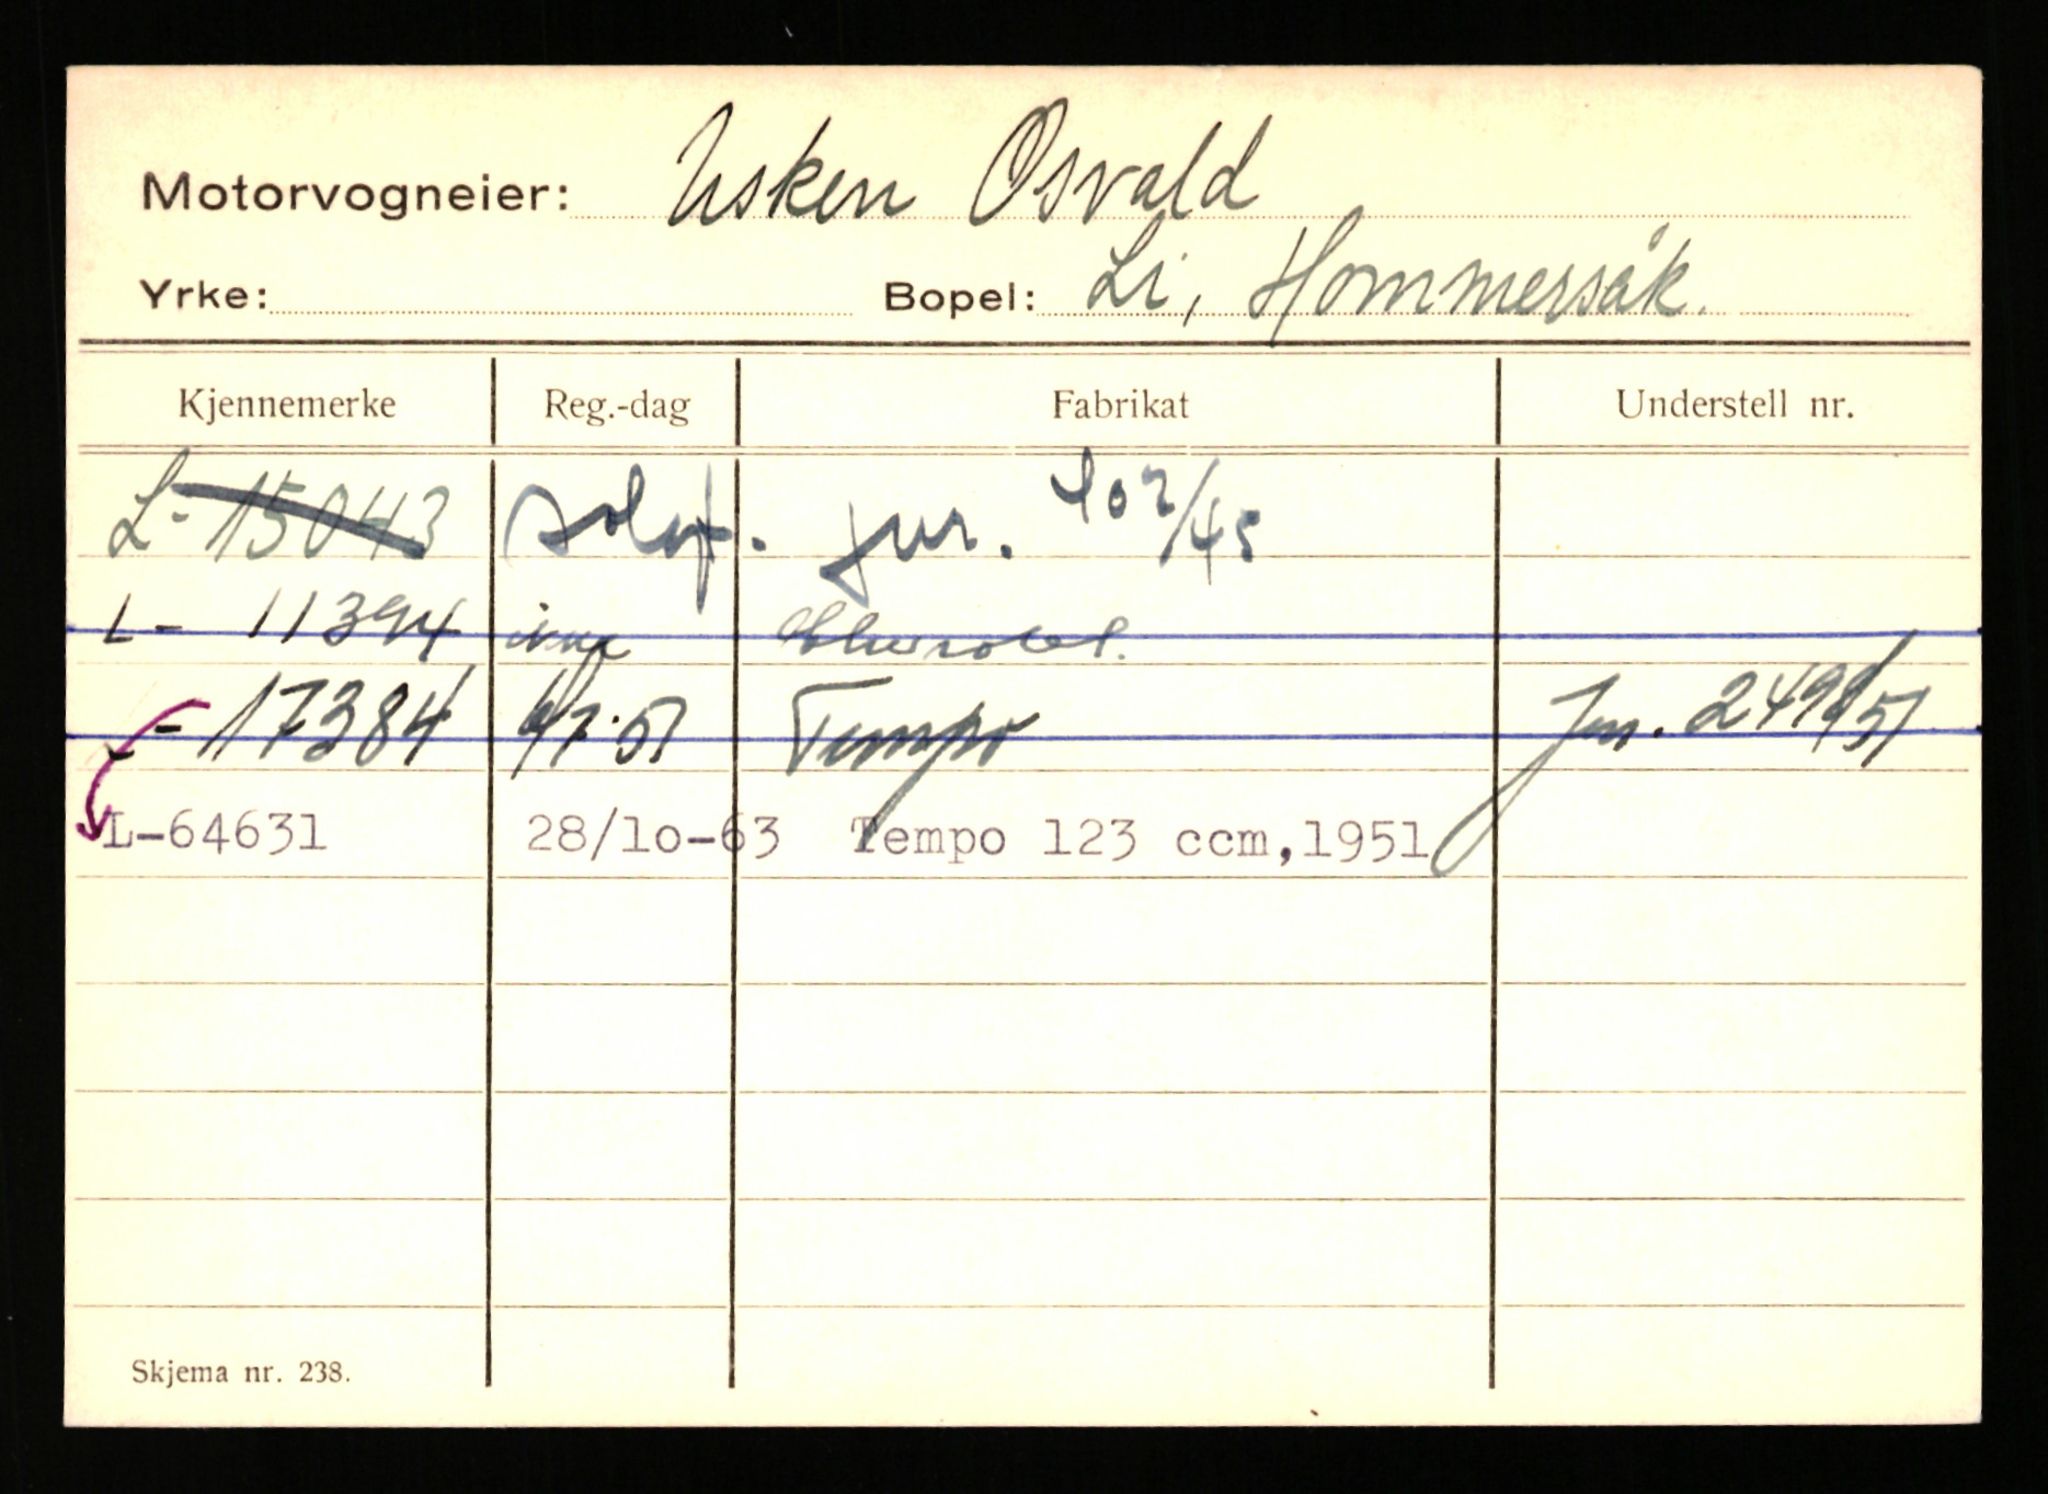 Motorvogneier: Usken Osvald
Yrke: Bopel: Li, Hommersåk.
Kjennemerke Reg.-dag Fabrikat Understell nr.
L-15043 solgt. jnr. 402/45
L- 11394 Chevrolet.
L-17384 6/7.51 Tempo Jnr. 2499/51
L-64631 28/10-63 Tempo 123 ccm,1951
Skjema nr. 238.